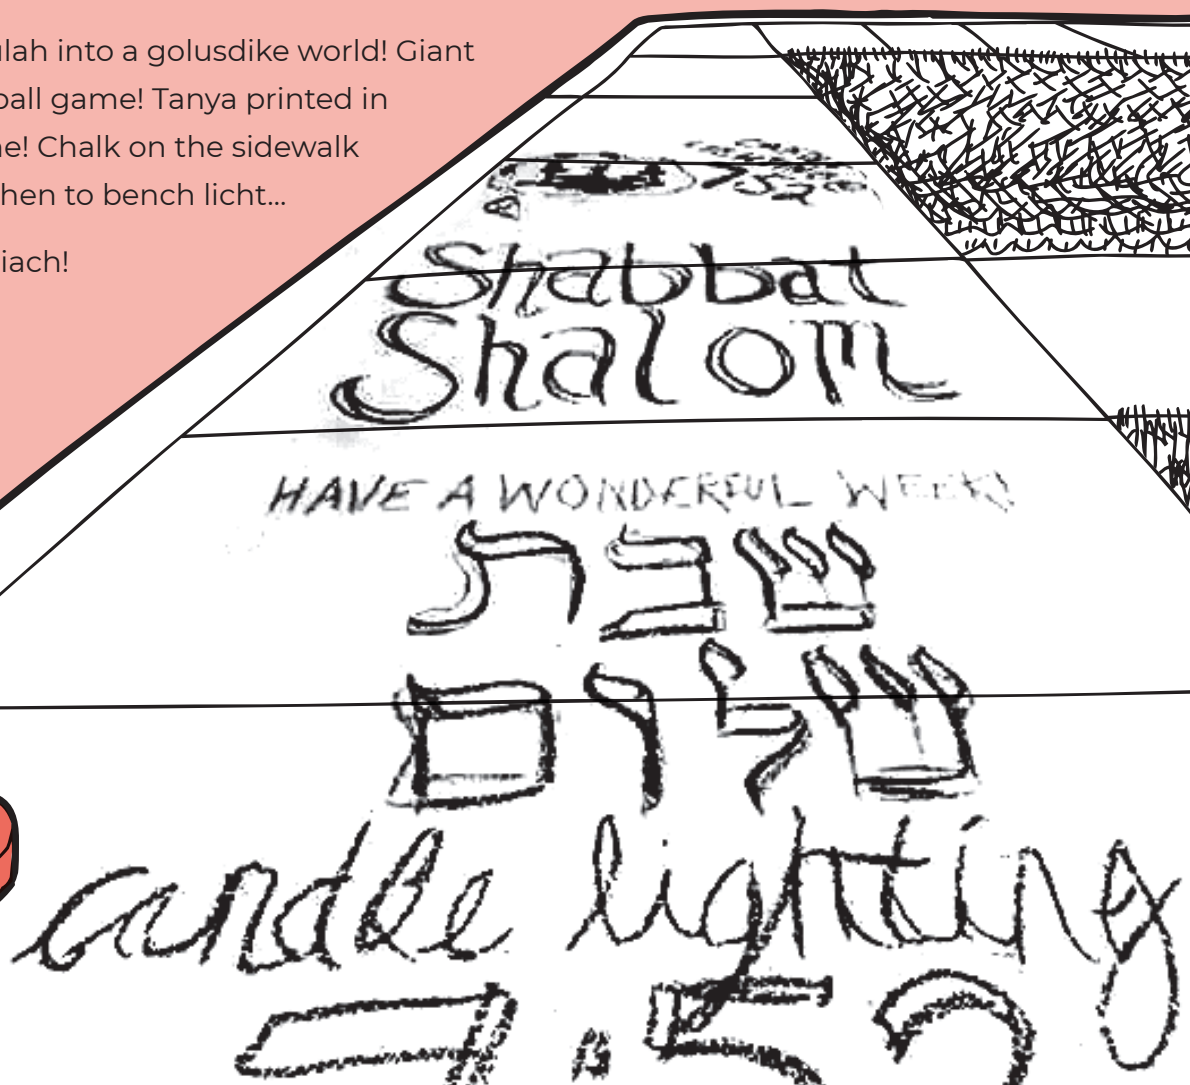 ulah into a golusdike world! Giant
ball game! Tanya printed in
e! Chalk on the sidewalk
hen to bench licht...
iach!
7:52
Shabbat
Shalom
HAVE A WONDERFUL WEEK!
שבת
שלום
candle lighting
7:52